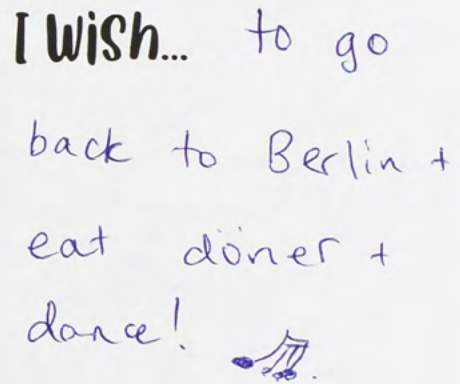 I Wish... to go
back to Berlin +
eat döner +
dance!